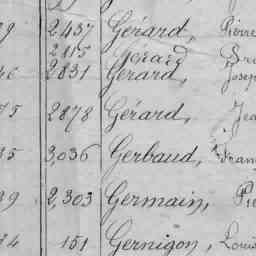 9 2,437 Gérard, Pierre
2,115 Gérard
46 2831 Gérard, Josep
75 2878 Gérard, Jea
35 3,036 Gerbaud, Fran
39 2,303 Germain, Pie
84 151 Gernigon, Loui